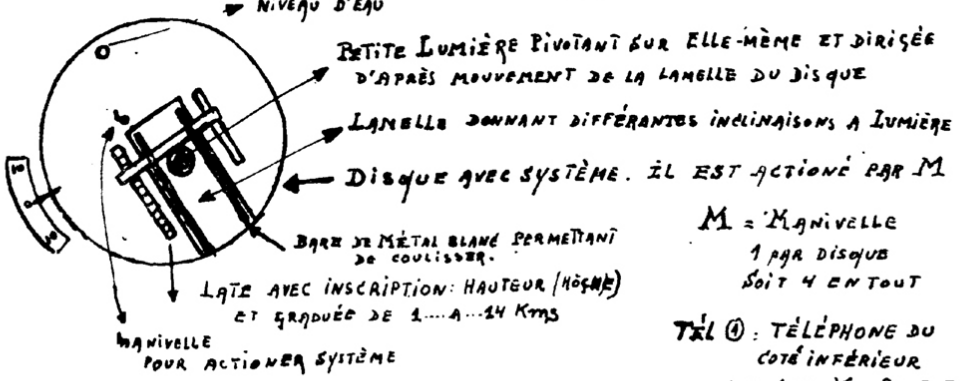 NIVEAU D'EAU
PETITE LUMIÈRE PIVOTANT SUR ELLE-MÊME ET DIRIGÉE
D'APRÈS MOUVEMENT DE LA LAMELLE DU DISQUE
LAMELLE DONNANT DIFFÉRANTES INCLINAISONS A LUMIÈRE
DISQUE AVEC SYSTÈME. IL EST ACTIONÉ PAR M
BARE DE MÉTAL BLANC PERMETTANT
DE COULISSER.
LATE AVEC INSCRIPTION: HAUTEUR (HÖGHE)
ET GRADUÉE DE 1....A...14 KMS
MANIVELLE
POUR ACTIONER SYSTÈME
M = MANIVELLE
1 PAR DISQUE
SOIT 4 EN TOUT
TÉL ①: TÉLÉPHONE DU
COTÉ INFÉRIEUR